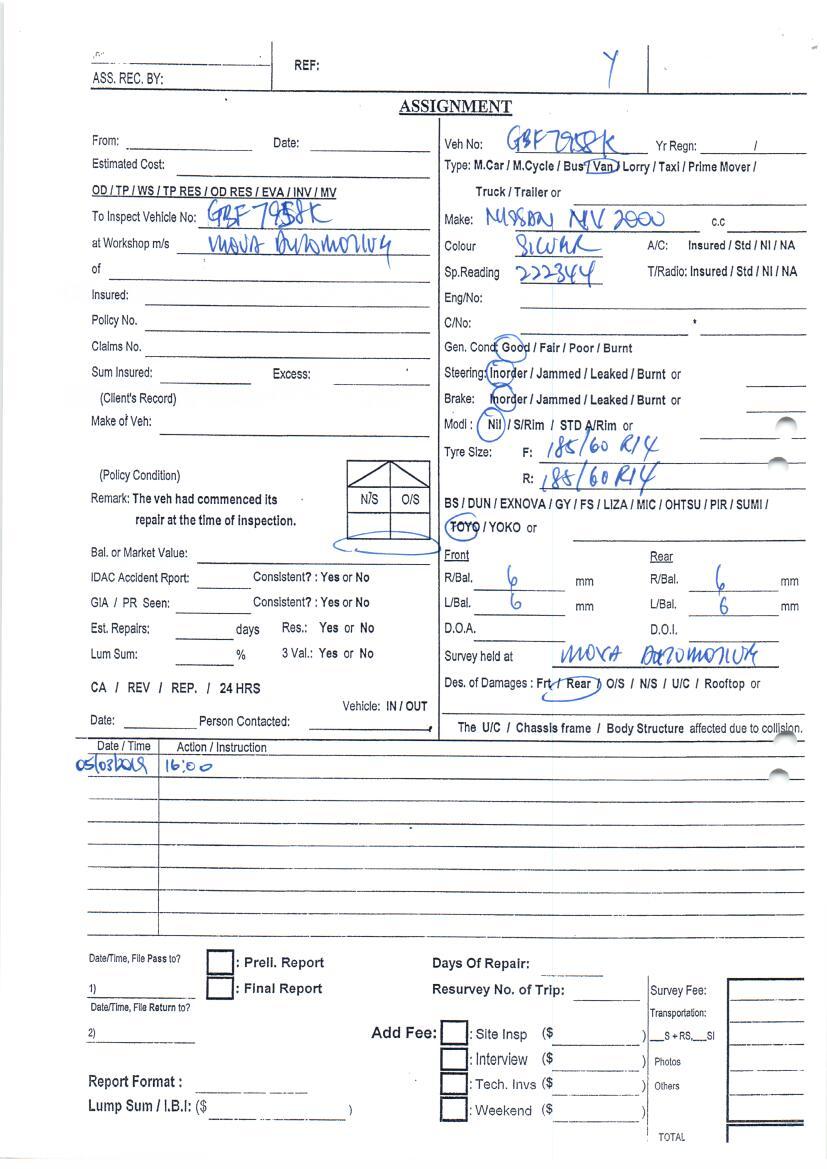 ASS. REC. BY:
REF:
Y
ASSIGNMENT
From: Date:
Estimated Cost:
OD / TP / WS / TP RES / OD RES / EVA / INV / MV
To Inspect Vehicle No: GBF 7958K
at Workshop m/s MOVA AUTOMOTIVE
of
Insured:
Policy No.
Claims No.
Sum Insured: Excess:
(Client's Record)
Make of Veh:
(Policy Condition)
N/S O/S
Remark: The veh had commenced its
repair at the time of inspection.
Bal. or Market Value:
IDAC Accident Rport: Consistent? : Yes or No
GIA / PR Seen: Consistent? : Yes or No
Est. Repairs: days Res.: Yes or No
Lum Sum: % 3 Val.: Yes or No
CA / REV / REP. / 24 HRS
Vehicle: IN / OUT
Date: Person Contacted:
Veh No: GBF 7958K Yr Regn: /
Type: M.Car / M.Cycle / Bus / Van / Lorry / Taxi / Prime Mover /
Truck / Trailer or
Make: NISSAN NV 2000 c.c
Colour SILVER A/C: Insured / Std / NI / NA
Sp.Reading 222344 T/Radio: Insured / Std / NI / NA
Eng/No:
C/No: *
Gen. Cond: Good / Fair / Poor / Burnt
Steering: Inorder / Jammed / Leaked / Burnt or
Brake: Inorder / Jammed / Leaked / Burnt or
Modi : Nil / S/Rim / STD A/Rim or
Tyre Size: F: 185/60 R14
R: 185/60 R14
BS / DUN / EXNOVA / GY / FS / LIZA / MIC / OHTSU / PIR / SUMI /
TOYO / YOKO or
Front Rear
R/Bal. 6 mm R/Bal. 6 mm
L/Bal. 6 mm L/Bal. 6 mm
D.O.A. D.O.I.
Survey held at MOVA AUTOMOTIVE
Des. of Damages : Frt / Rear / O/S / N/S / U/C / Rooftop or
The U/C / Chassis frame / Body Structure affected due to collision.
Date / Time Action / Instruction
05/03/2019 16:00
Date/Time, File Pass to?
1)
Date/Time, File Return to?
2)
: Preli. Report
: Final Report
Days Of Repair:
Resurvey No. of Trip:
Add Fee: : Site Insp ($ )
: Interview ($ )
: Tech. Invs ($ )
: Weekend ($ )
Report Format :
Lump Sum / I.B.I: ($ )
Survey Fee:
Transportation:
__S + RS,__SI
Photos
Others
TOTAL